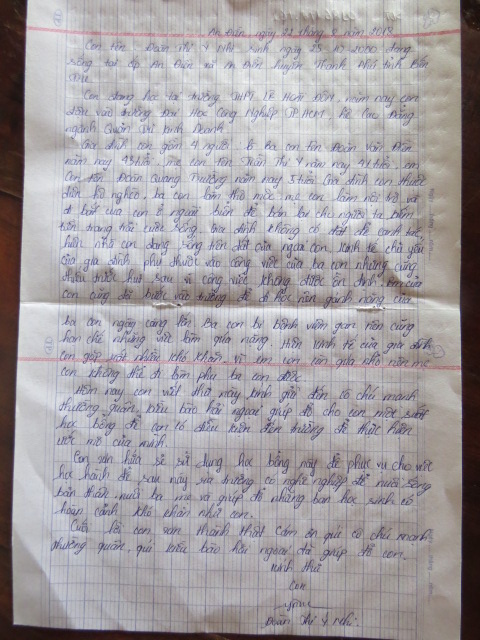 An Điền ngày 22 tháng 8 năm 2018
Con tên: Đoàn Thị Ý Nhi sinh ngày 25-10-2000 đang
sống tại ấp An Điền xã An Điền huyện Thạnh Phú tỉnh Bến
Con đang học tại trường THPT Lê Hoài Đôn, năm nay con
đậu vào trường Đại Học Công Nghiệp TP.HCM, hệ Cao Đẳng
ngành Quản trị kinh Doanh.
Gia đình con gồm 4 người là ba con tên Đoàn Văn Đền
năm nay 43 tuổi, mẹ con tên Trần Thị 4 năm nay 41 tuổi, em
Con tên Đoàn Quang Trường năm nay 5 tuổi. Gia đình con thuộc
diện hộ nghèo, ba con làm thợ mộc mẹ con làm nội trợ và
đi bắt cua còn ở ngoài biển để bán lại cho người ta kiếm
tiền trang trải cuộc sống. Gia đình không có đất để canh tác,
hiện nhà con đang sống trên đất của ngoại con. Kinh tế chủ yếu
của gia đình phụ thuộc vào công việc của ba con nhưng cũng
thiếu trước hụt sau vì công việc không được ổn định. Em của
con cũng đã bước vào trường để đi học nên gánh nặng của
ba con ngày càng lớn. Ba con bị bệnh viêm gan nên cũng
hạn chế những việc làm quá nặng. Nên kinh tế của gia đình
con gặp rất nhiều khó khăn. Vì em con còn quá nhỏ nên mẹ
con không thể đi làm phụ ba con được.
Hôm nay con viết thư này kính gửi đến cô chú mạnh
thường quân, kiều bào hải ngoại giúp đỡ cho con một suất
học bổng để con có điều kiện đến trường để thực hiện
ước mơ của mình.
Con xin hứa sẽ sử dụng học bổng này để phục vụ cho việc
học hành để sau này ra trường có nghề nghiệp để nuôi sống
bản thân, nuôi ba mẹ và giúp đỡ những bạn học sinh có
hoàn cảnh khó khăn như con.
Cuối lời con xin thành thật cảm ơn quí cô chú mạnh
thường quân, quí kiều bào hải ngoại đã giúp đỡ con.
Kính thư
Con
Đoàn Thị Ý Nhi.